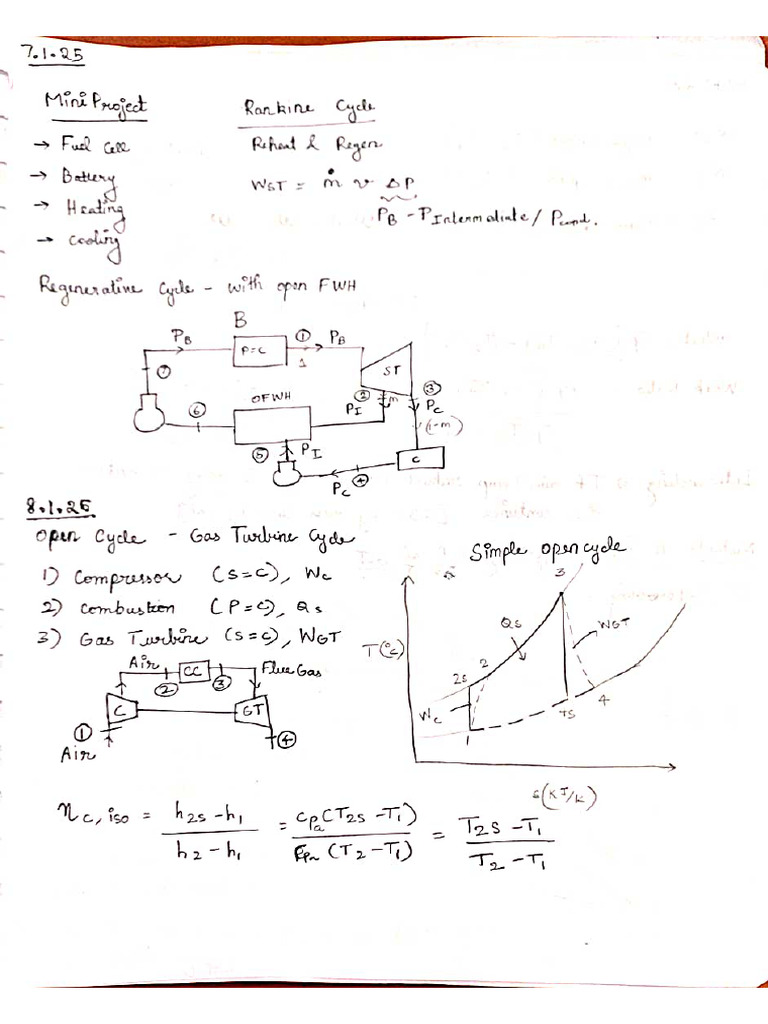 7.1.25
Mini Project
→ Fuel Cell
→ Battery
→ Heating
→ Cooling
Rankine Cycle
Reheat & Regen
WST = ṁ v ΔP
PB - PIntermediate / Pcond.
Regenerative Cycle - with open FWH
B
PB
P=C
① PB
1
ST
⑦
⑥
OFWH
② m
PI
③
PC
(1-m)
⑤ PI
C
PC ④
8.1.25
Open Cycle - Gas Turbine Cycle
1) Compressor (S=C), Wc
2) Combustion (P=C), Qs
3) Gas Turbine (S=C), WGT
Air
②
CC
③
Flue Gas
C
GT
①
Air
④
Simple open cycle
T(°C)
3
Qs
WGT
2s
2
Wc
1
4s
4
s(KJ/K)
ηc, iso = h2s - h1 / h2 - h1 = cpa(T2s - T1) / cpa (T2 - T1) = T2s - T1 / T2 - T1